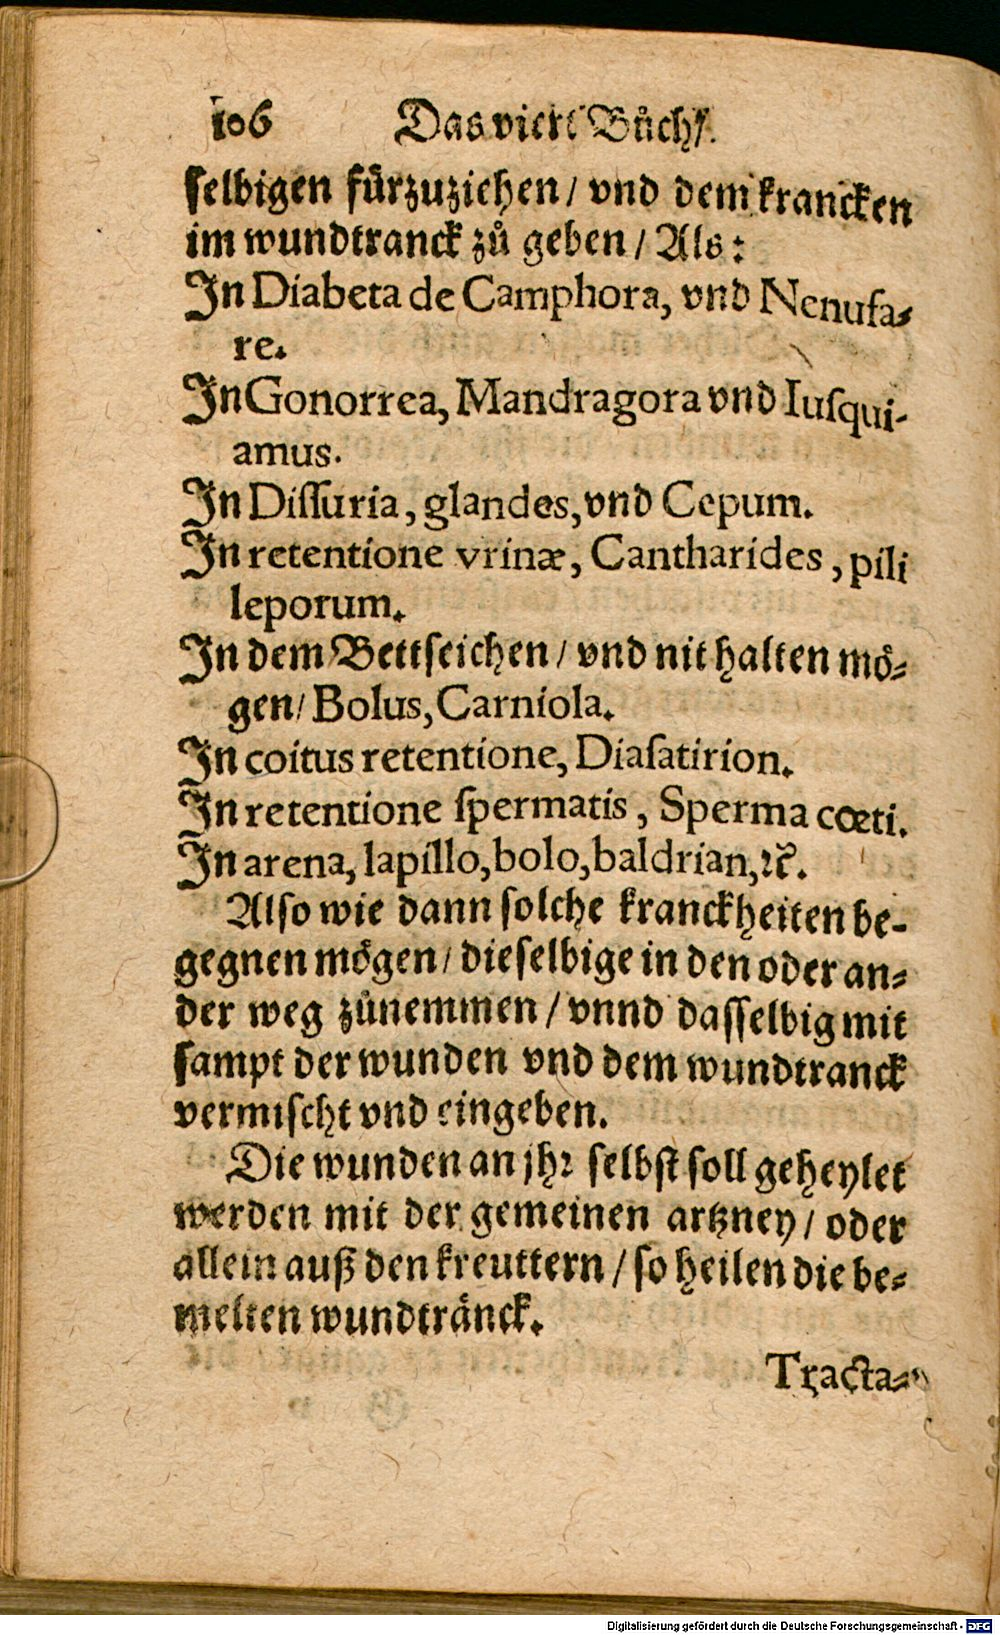 106 Das viert Bůch/.
selbigen fürzuziehen / vnd dem krancken
im wundtranck zů geben / Als:
In Diabeta de Camphora, vnd Nenufa⸗
re.
In Gonorrea, Mandragora vnd Iuſqui-
amus.
In Diſſuria, glandes, vnd Cepum.
In retentione vrinæ, Cantharides, pili
leporum.
In dem Bettſeichen / vnd nit halten mö⸗
gen / Bolus, Carniola.
In coitus retentione, Diaſatirion.
In retentione ſpermatis, Sperma cœti.
In arena, lapillo, bolo, baldrian, ꝛc̃.
Alſo wie dann ſolche kranckheiten be-
gegnen mögen / dieſelbige in den oder an⸗
der weg zůnemmen / vnnd daſſelbig mit
ſampt der wunden vnd dem wundtranck
vermiſcht vnd eingeben.
Die wunden an jhꝛ ſelbſt ſoll geheylet
werden mit der gemeinen artzney / oder
allein auß den kreuttern / ſo heilen die be⸗
melten wundtränck.
Tracta⸗
Digitalisierung gefördert durch die Deutsche Forschungsgemeinschaft - DFG